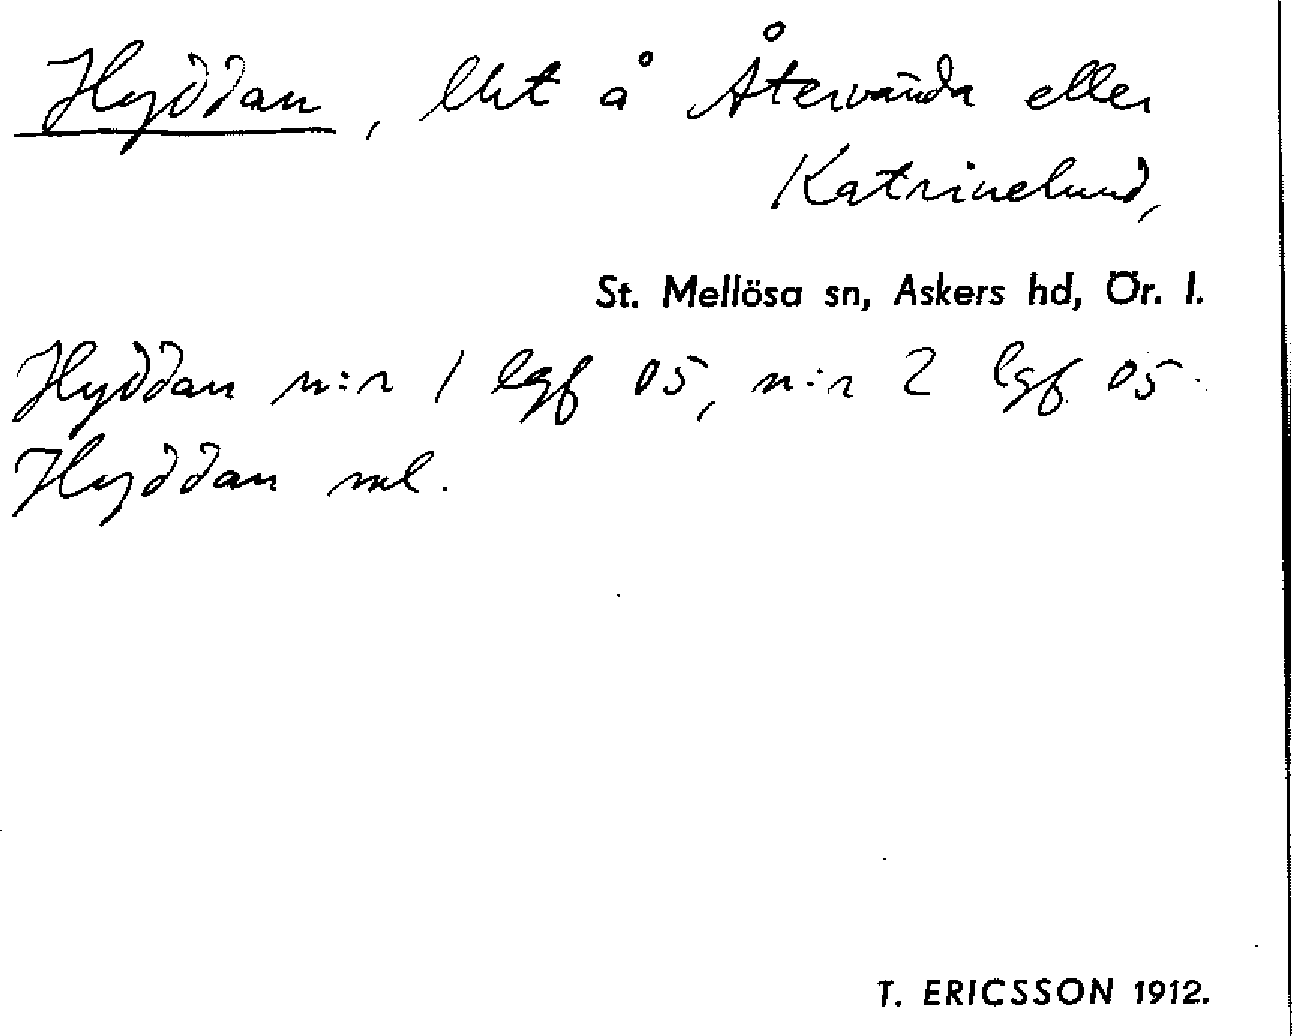 Hyddan, lht å Återvända eller
Katrinelund,
St. Mellösa sn, Askers hd, Ör. l.
Hyddan n:r 1 lgf 05, n:r 2 lgf 05.
Hyddan ml.
T. ERICSSON 1912.